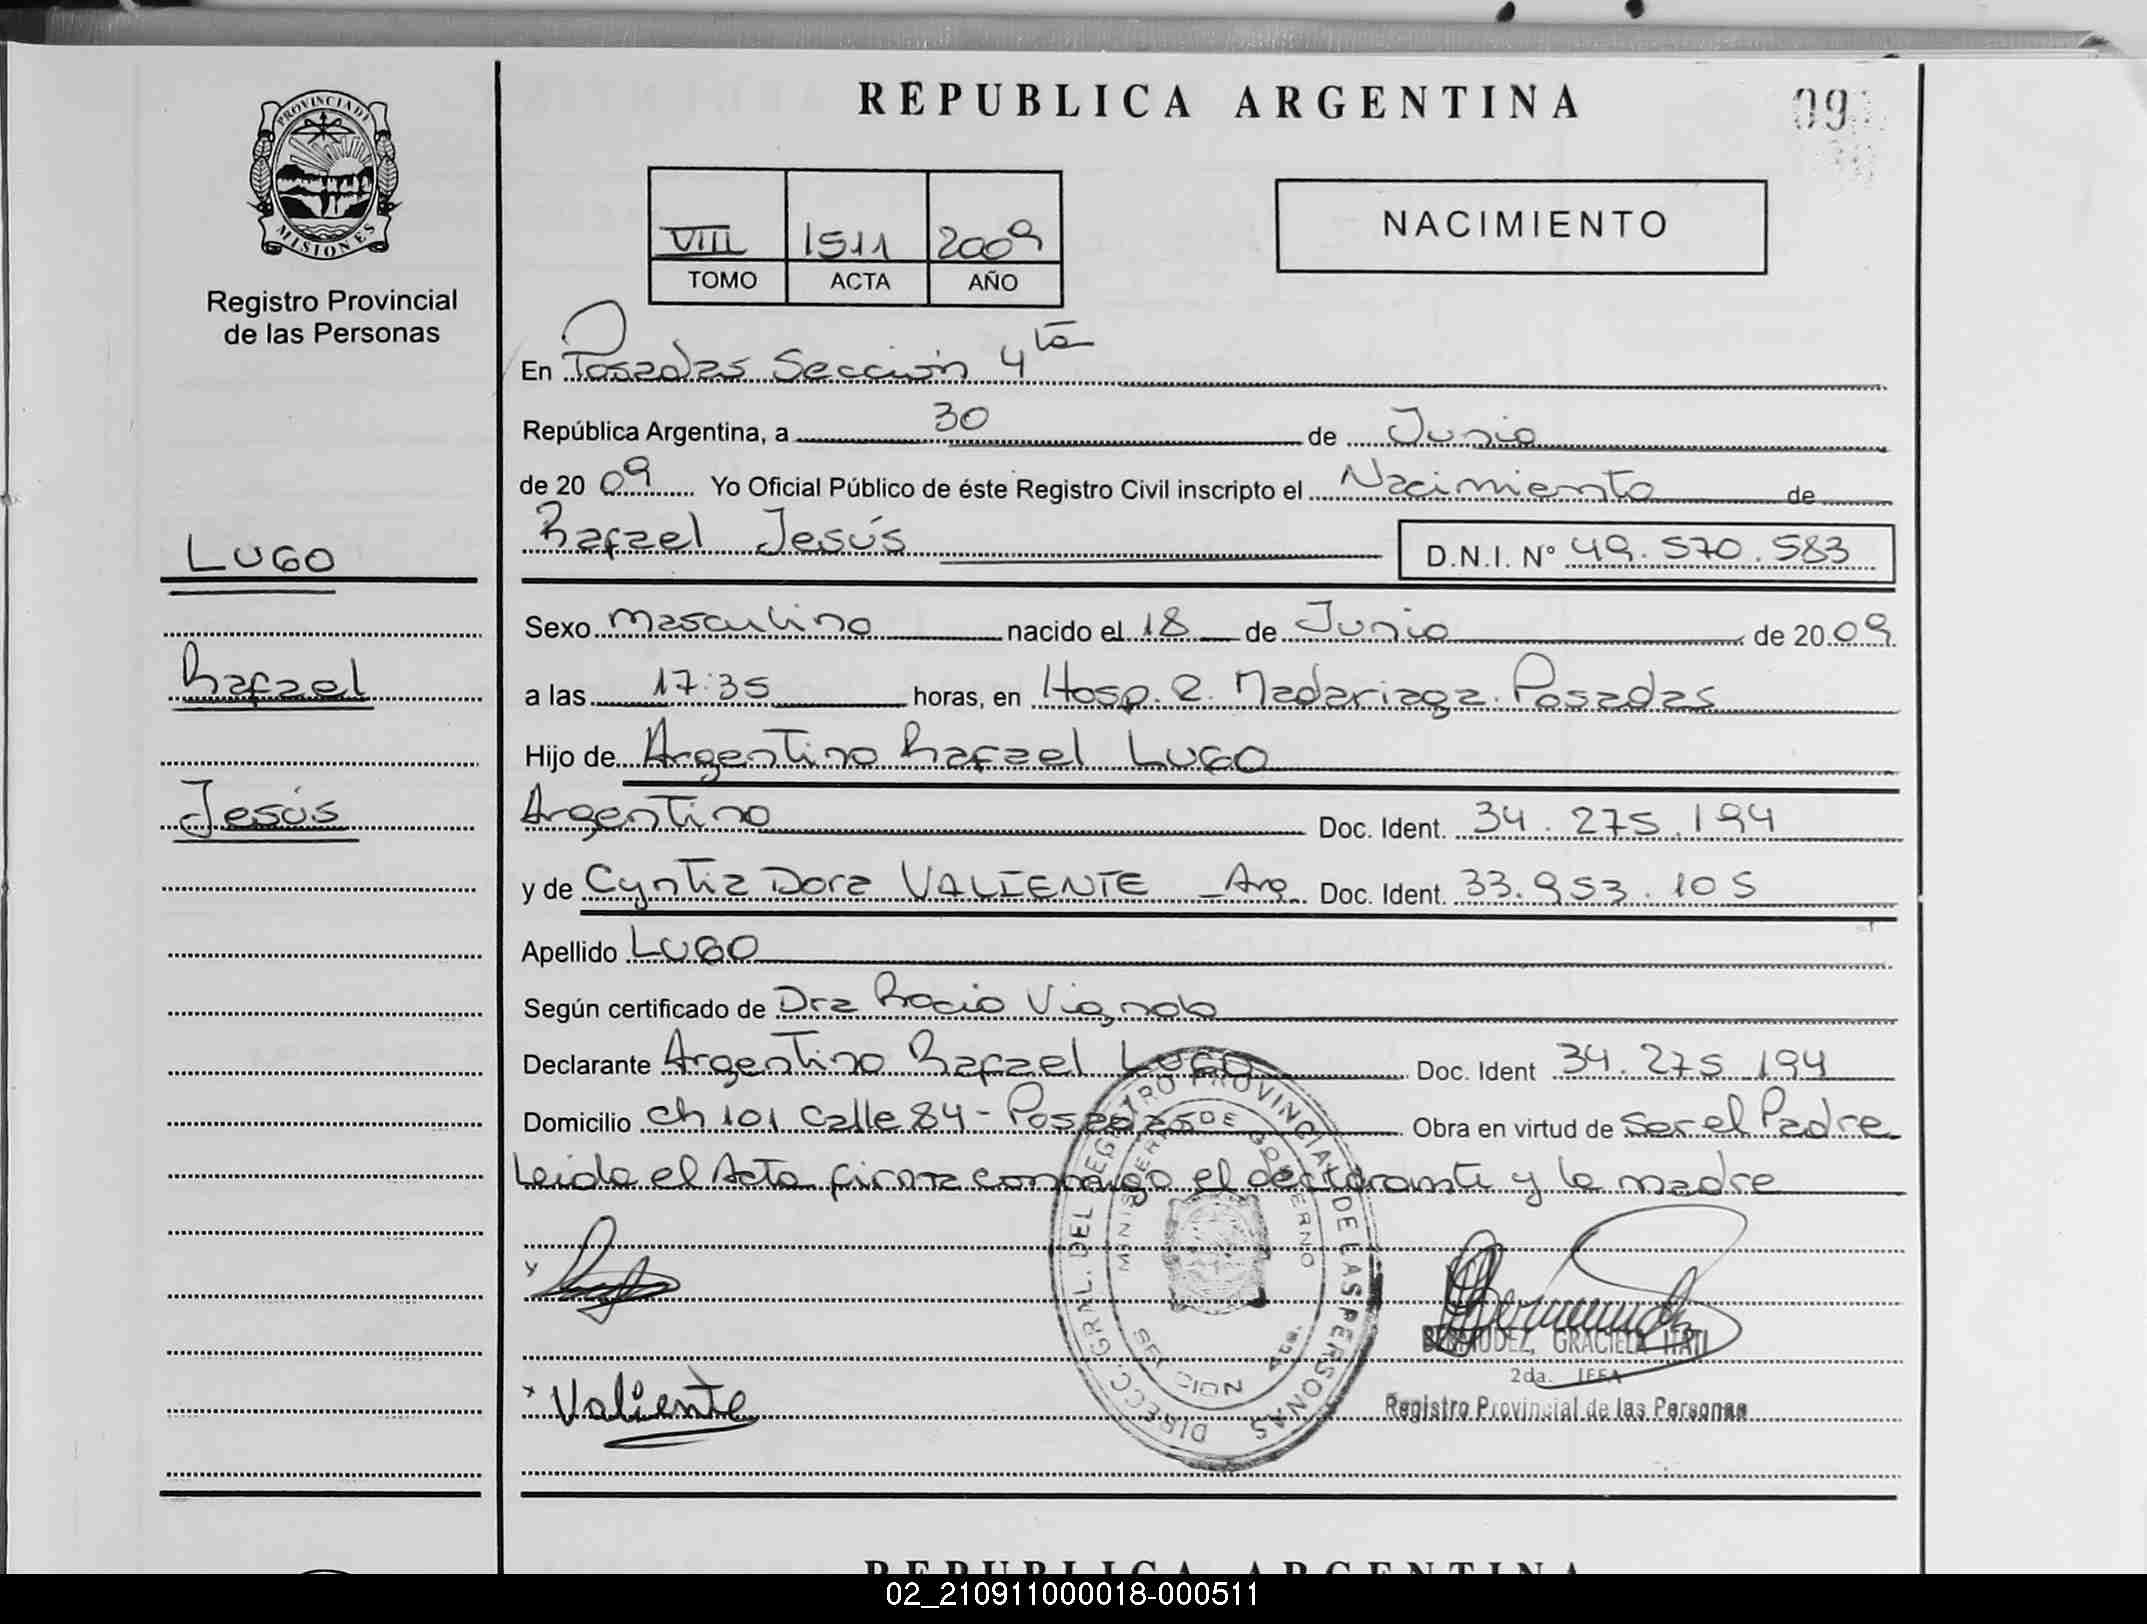 REPUBLICA ARGENTINA
09
PROVINCIA DE
MISIONES
Registro Provincial
de las Personas
VIII 1511 2009
TOMO ACTA AÑO
NACIMIENTO
En Posadas Sección 4ta
República Argentina, a 30 de Junio
de 20 09 Yo Oficial Público de éste Registro Civil inscripto el Nacimiento de
Rafael Jesús D.N.I. N° 49.570.583
LUGO
Rafael
Jesús
Sexo masculino nacido el 18 de Junio de 20 09
a las 17:35 horas, en Hosp. R. Madariaga. Posadas
Hijo de Argentino Rafael LUGO
Argentino Doc. Ident. 34.275.194
y de Cyntia Dora VALIENTE - Arg. Doc. Ident. 33.953.105
Apellido LUGO
Según certificado de Dra Rocio
Declarante Argentino Rafael LUGO Doc. Ident 34.275.194
Domicilio Ch 101 Calle 84 - Posadas Obra en virtud de Ser el Padre
Leida el Acta firma conmigo el declarante y la madre
DIRECC. GRAL. DEL REGISTRO PROVINCIAL DE LAS PERSONAS
MINISTERIO DE GOBIERNO
Valiente
BERMUDEZ, GRACIELA ITATI
2da. JEFA
Registro Provincial de las Personas
REPUBLICA ARGENTINA
02_210911000018-000511